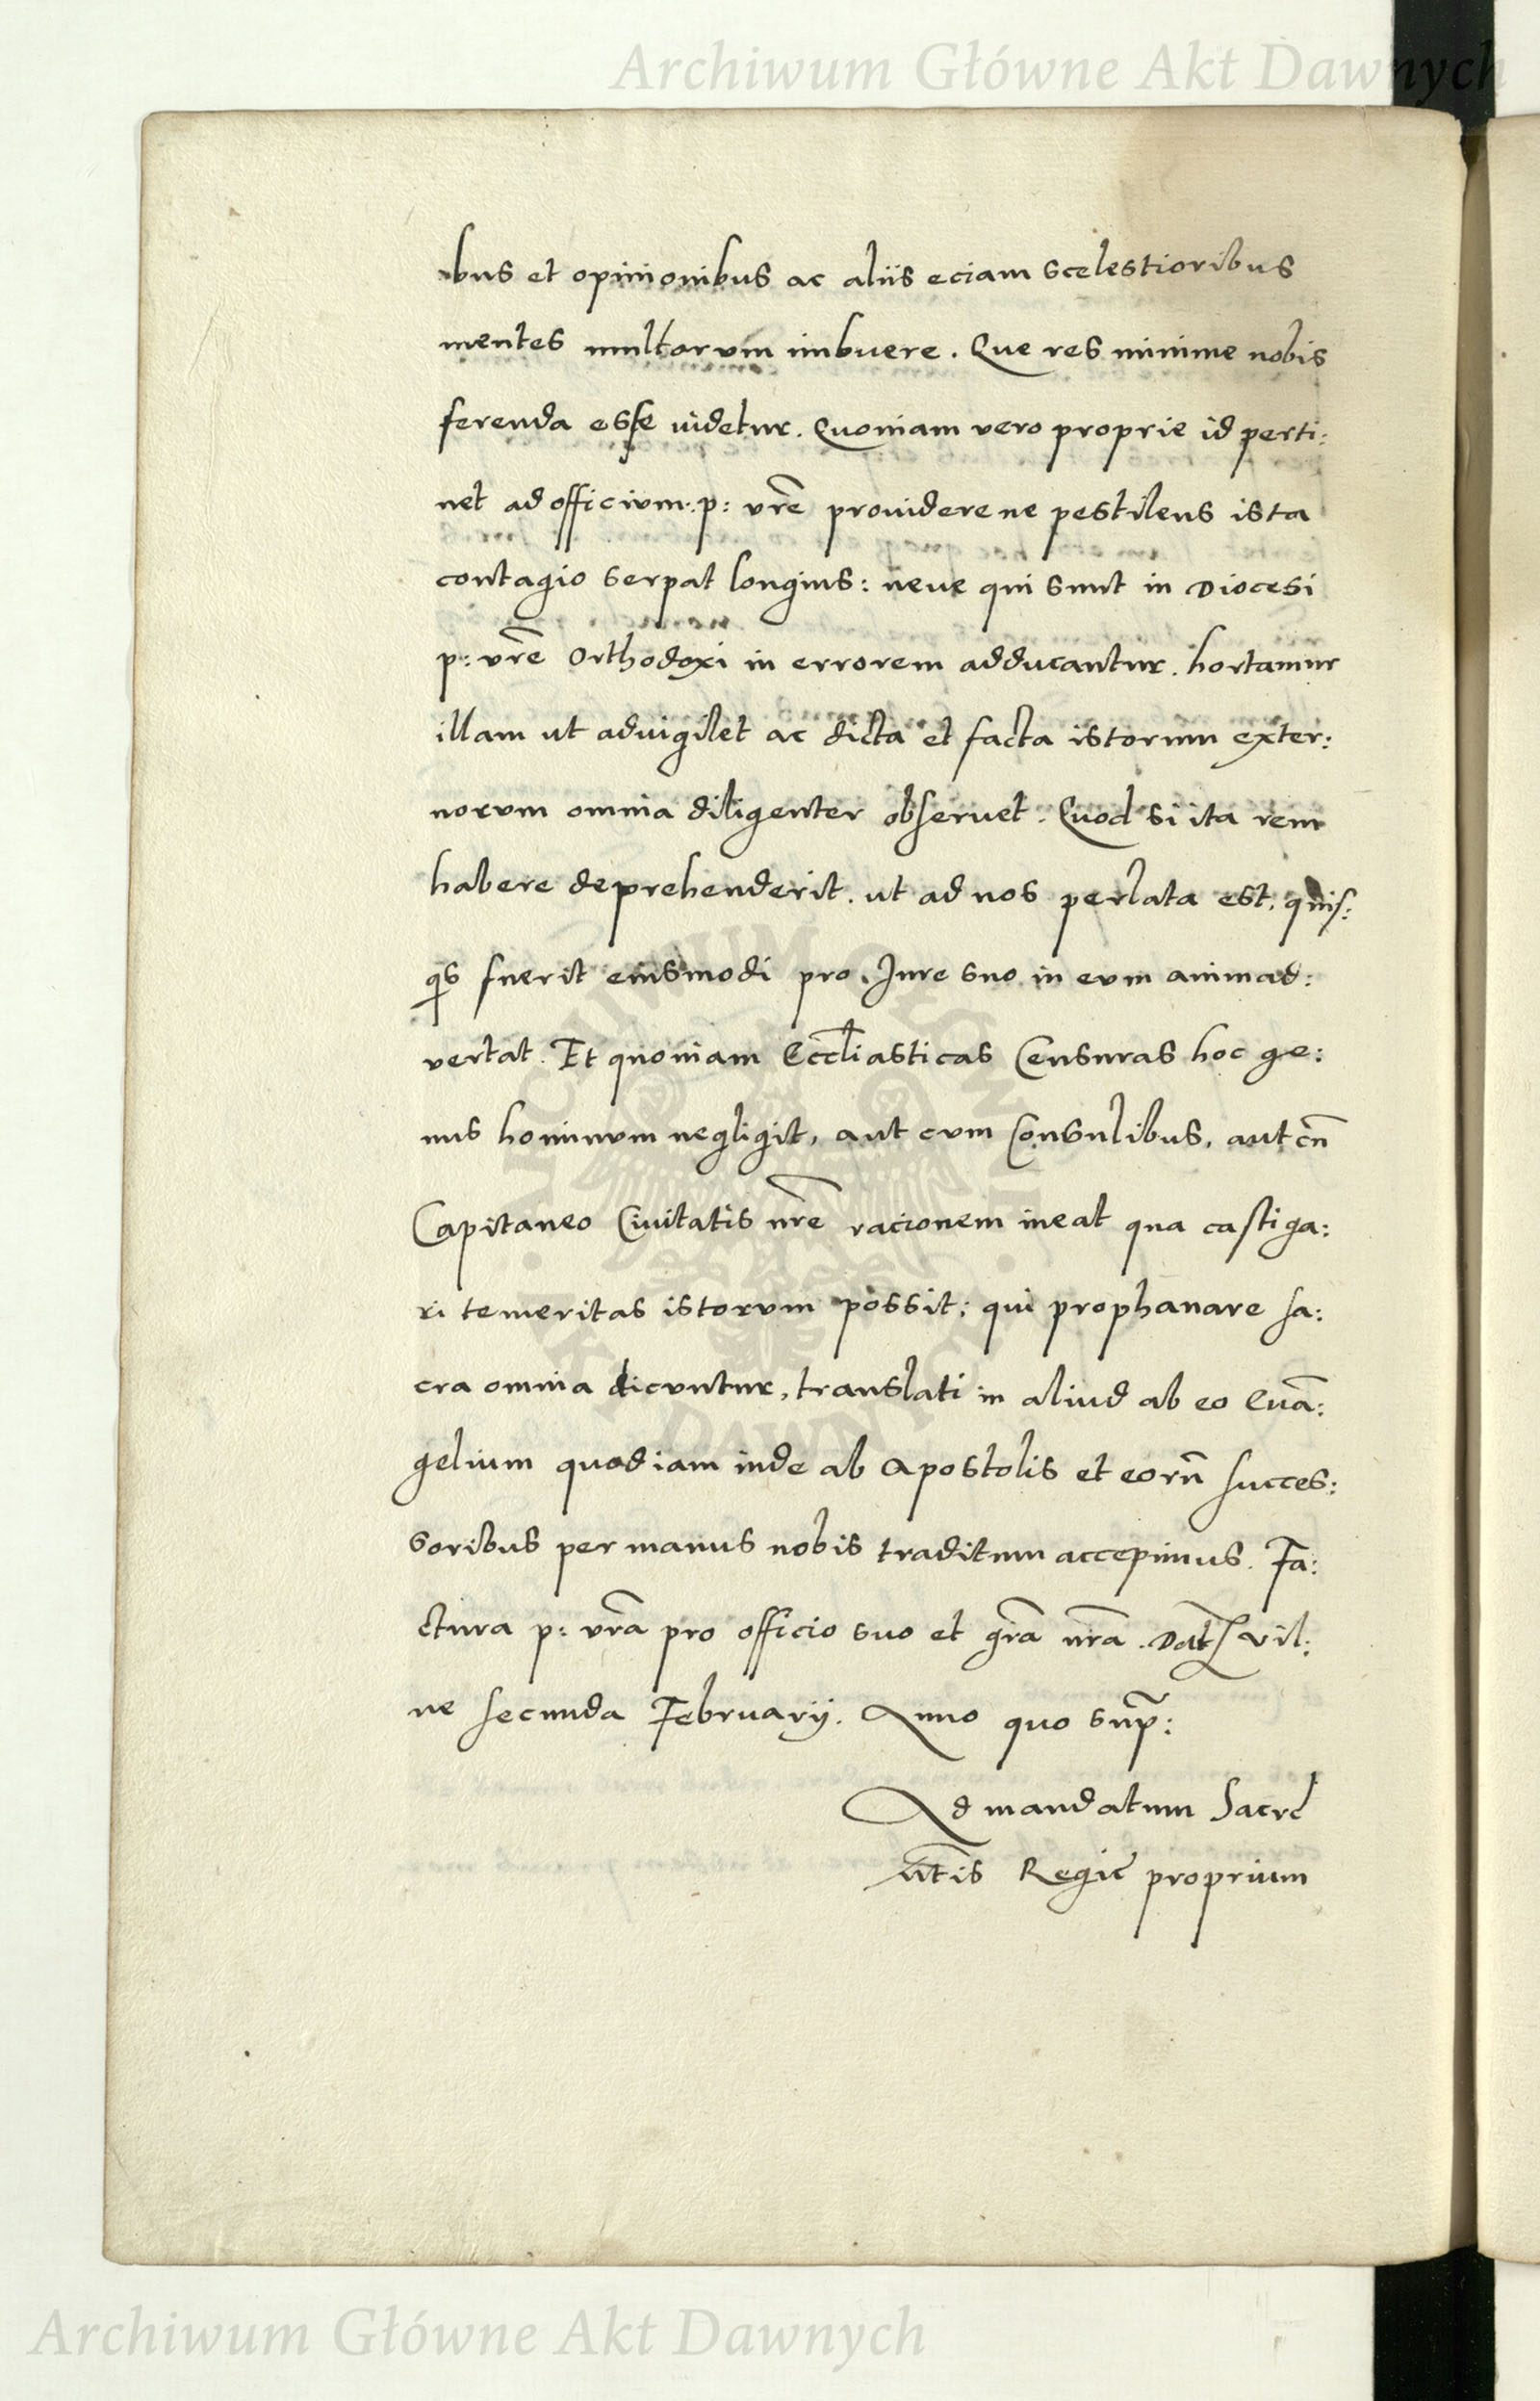 Archiwum Główne Akt Dawnych
bus et opinionibus ac aliis eciam scelestioribus
mentes multorum imbuere. Que res minime nobis
ferenda esse uidetur. Quoniam vero proprie id perti:
net ad officium. p: vrẽ prouidere ne pestilens ista
contagio serpat longius: neue qui sunt in Diocesi
p: vrẽ Orthodoxi in errorem adducantur. hortamur
illam ut aduigilet ac dicta et facta istorum exter:
norum omnia diligenter obseruet. Quod si ita rem
habere deprehenderit. ut ad nos perlata est. quis:
qs fuerit eiusmodi pro Jure suo in eum animad:
vertat. Et quoniam Eccliasticas Censuras hoc ge:
nus hominum negligit, aut cum Consulibus, aut cũ
Capitaneo Ciuitatis nrẽ racionem ineat qua castiga:
ri temeritas istorum possit: qui prophanare sa:
cra omnia dicuntur, translati in aliud ab eo Euã:
gelium quod iam inde ab Apostolis et eorũ succes:
soribus per manus nobis traditum accepimus. Fa:
ctura p: vrã pro officio suo et grã nrã. Dat Vil:
ne secunda Februarij. Anno quo sup:
Ad mandatum Sacrę
Mtis Regię proprium
ARCHIWUM GŁÓWNE
AKT DAWNYCH
Archiwum Główne Akt Dawnych